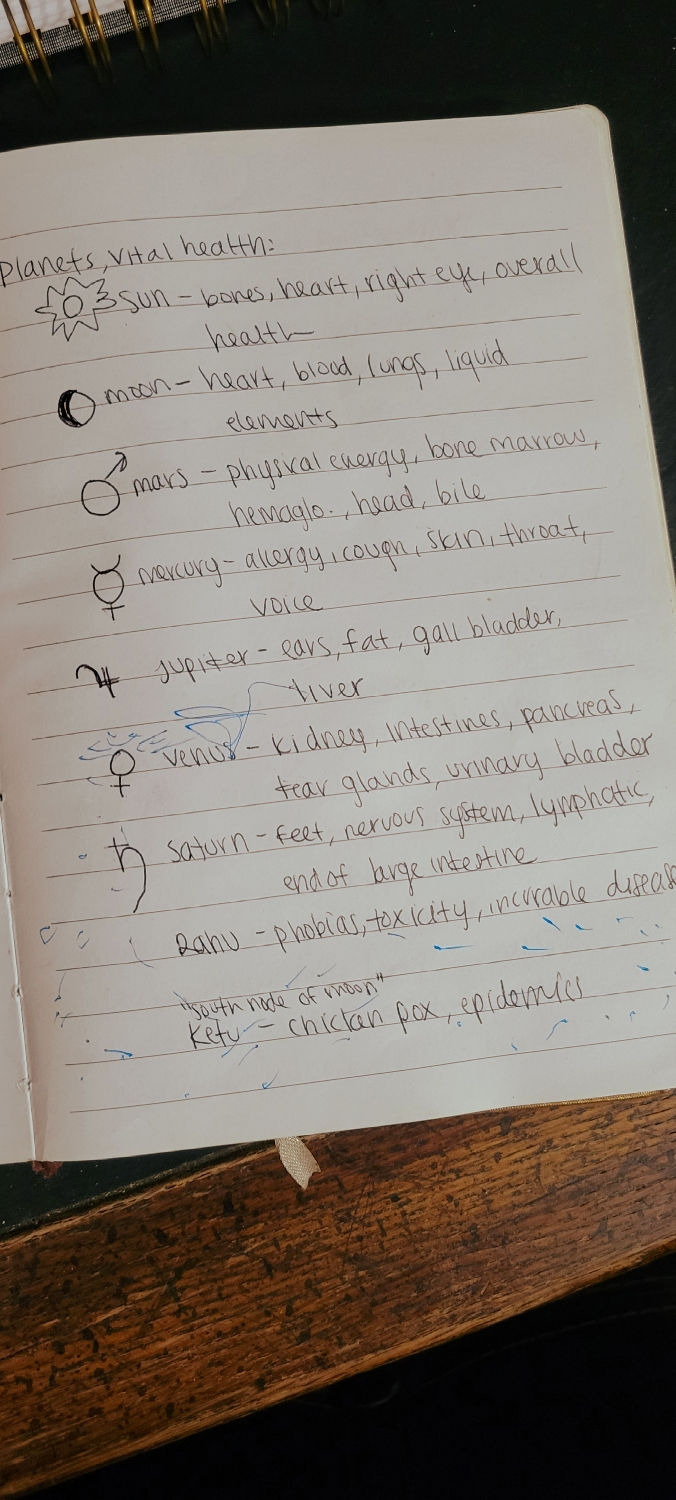 Planets, vital health:
Sun - bones, heart, right eye, overall
health
moon - heart, blood, lungs, liquid
elements
mars - physical energy, bone marrow,
hemaglo., head, bile
mercury - allergy, cough, skin, throat,
voice
Jupiter - ears, fat, gall bladder,
liver
venus - kidney, intestines, pancreas,
tear glands, urinary bladder
saturn - feet, nervous system, lymphatic,
end of large intestine
Rahu - phobias, toxicity, incurable diseas
"south node of moon"
Ketu - chickan pox, epidemics